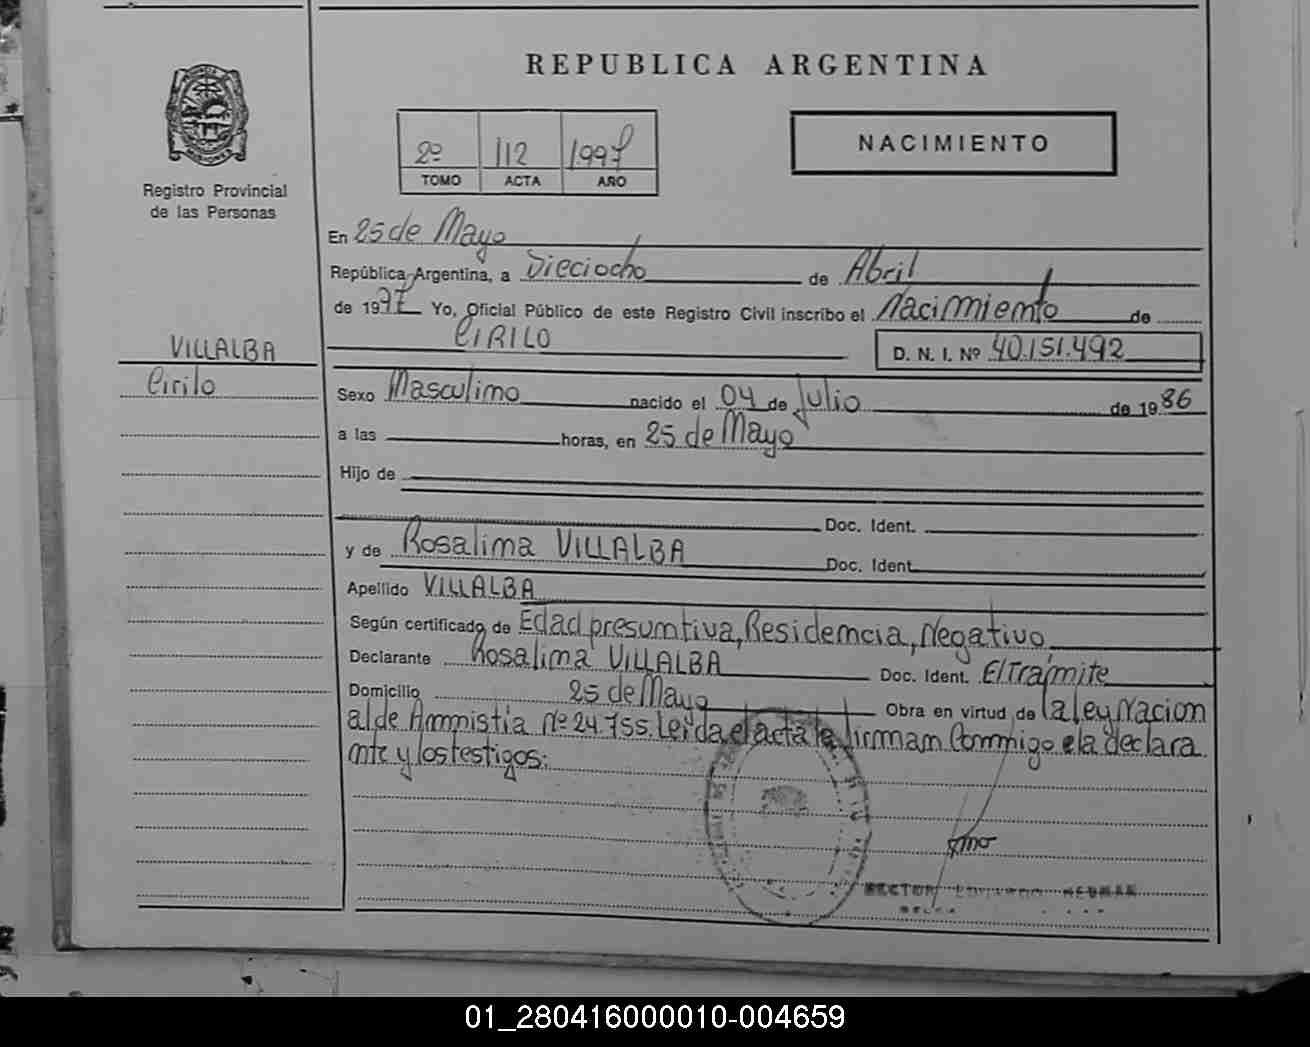 REPUBLICA ARGENTINA
NACIMIENTO
2º 112 1997
TOMO ACTA AÑO
Registro Provincial
de las Personas
En 25 de Mayo
República Argentina, a Dieciocho de Abril
de 1997 Yo, Oficial Público de este Registro Civil inscribo el Nacimiento de
CIRILO D. N. I. Nº 40.151.492
VILLALBA
Cirilo
Sexo Masculino nacido el 04 de Julio de 1986
a las horas, en 25 de Mayo
Hijo de
Doc. Ident.
y de Rosalina VILLALBA Doc. Ident.
Apellido VILLALBA
Según certificado de Edad presuntiva, Residencia, Negativo
Declarante Rosalina VILLALBA Doc. Ident. El Trámite
Domicilio 25 de Mayo Obra en virtud de la ley Nacion
al de Amnistia Nº 24.755. Leida el acta la firman Conmigo la declara
nte y los testigos:
HECTOR EDUARDO
01_280416000010-004659